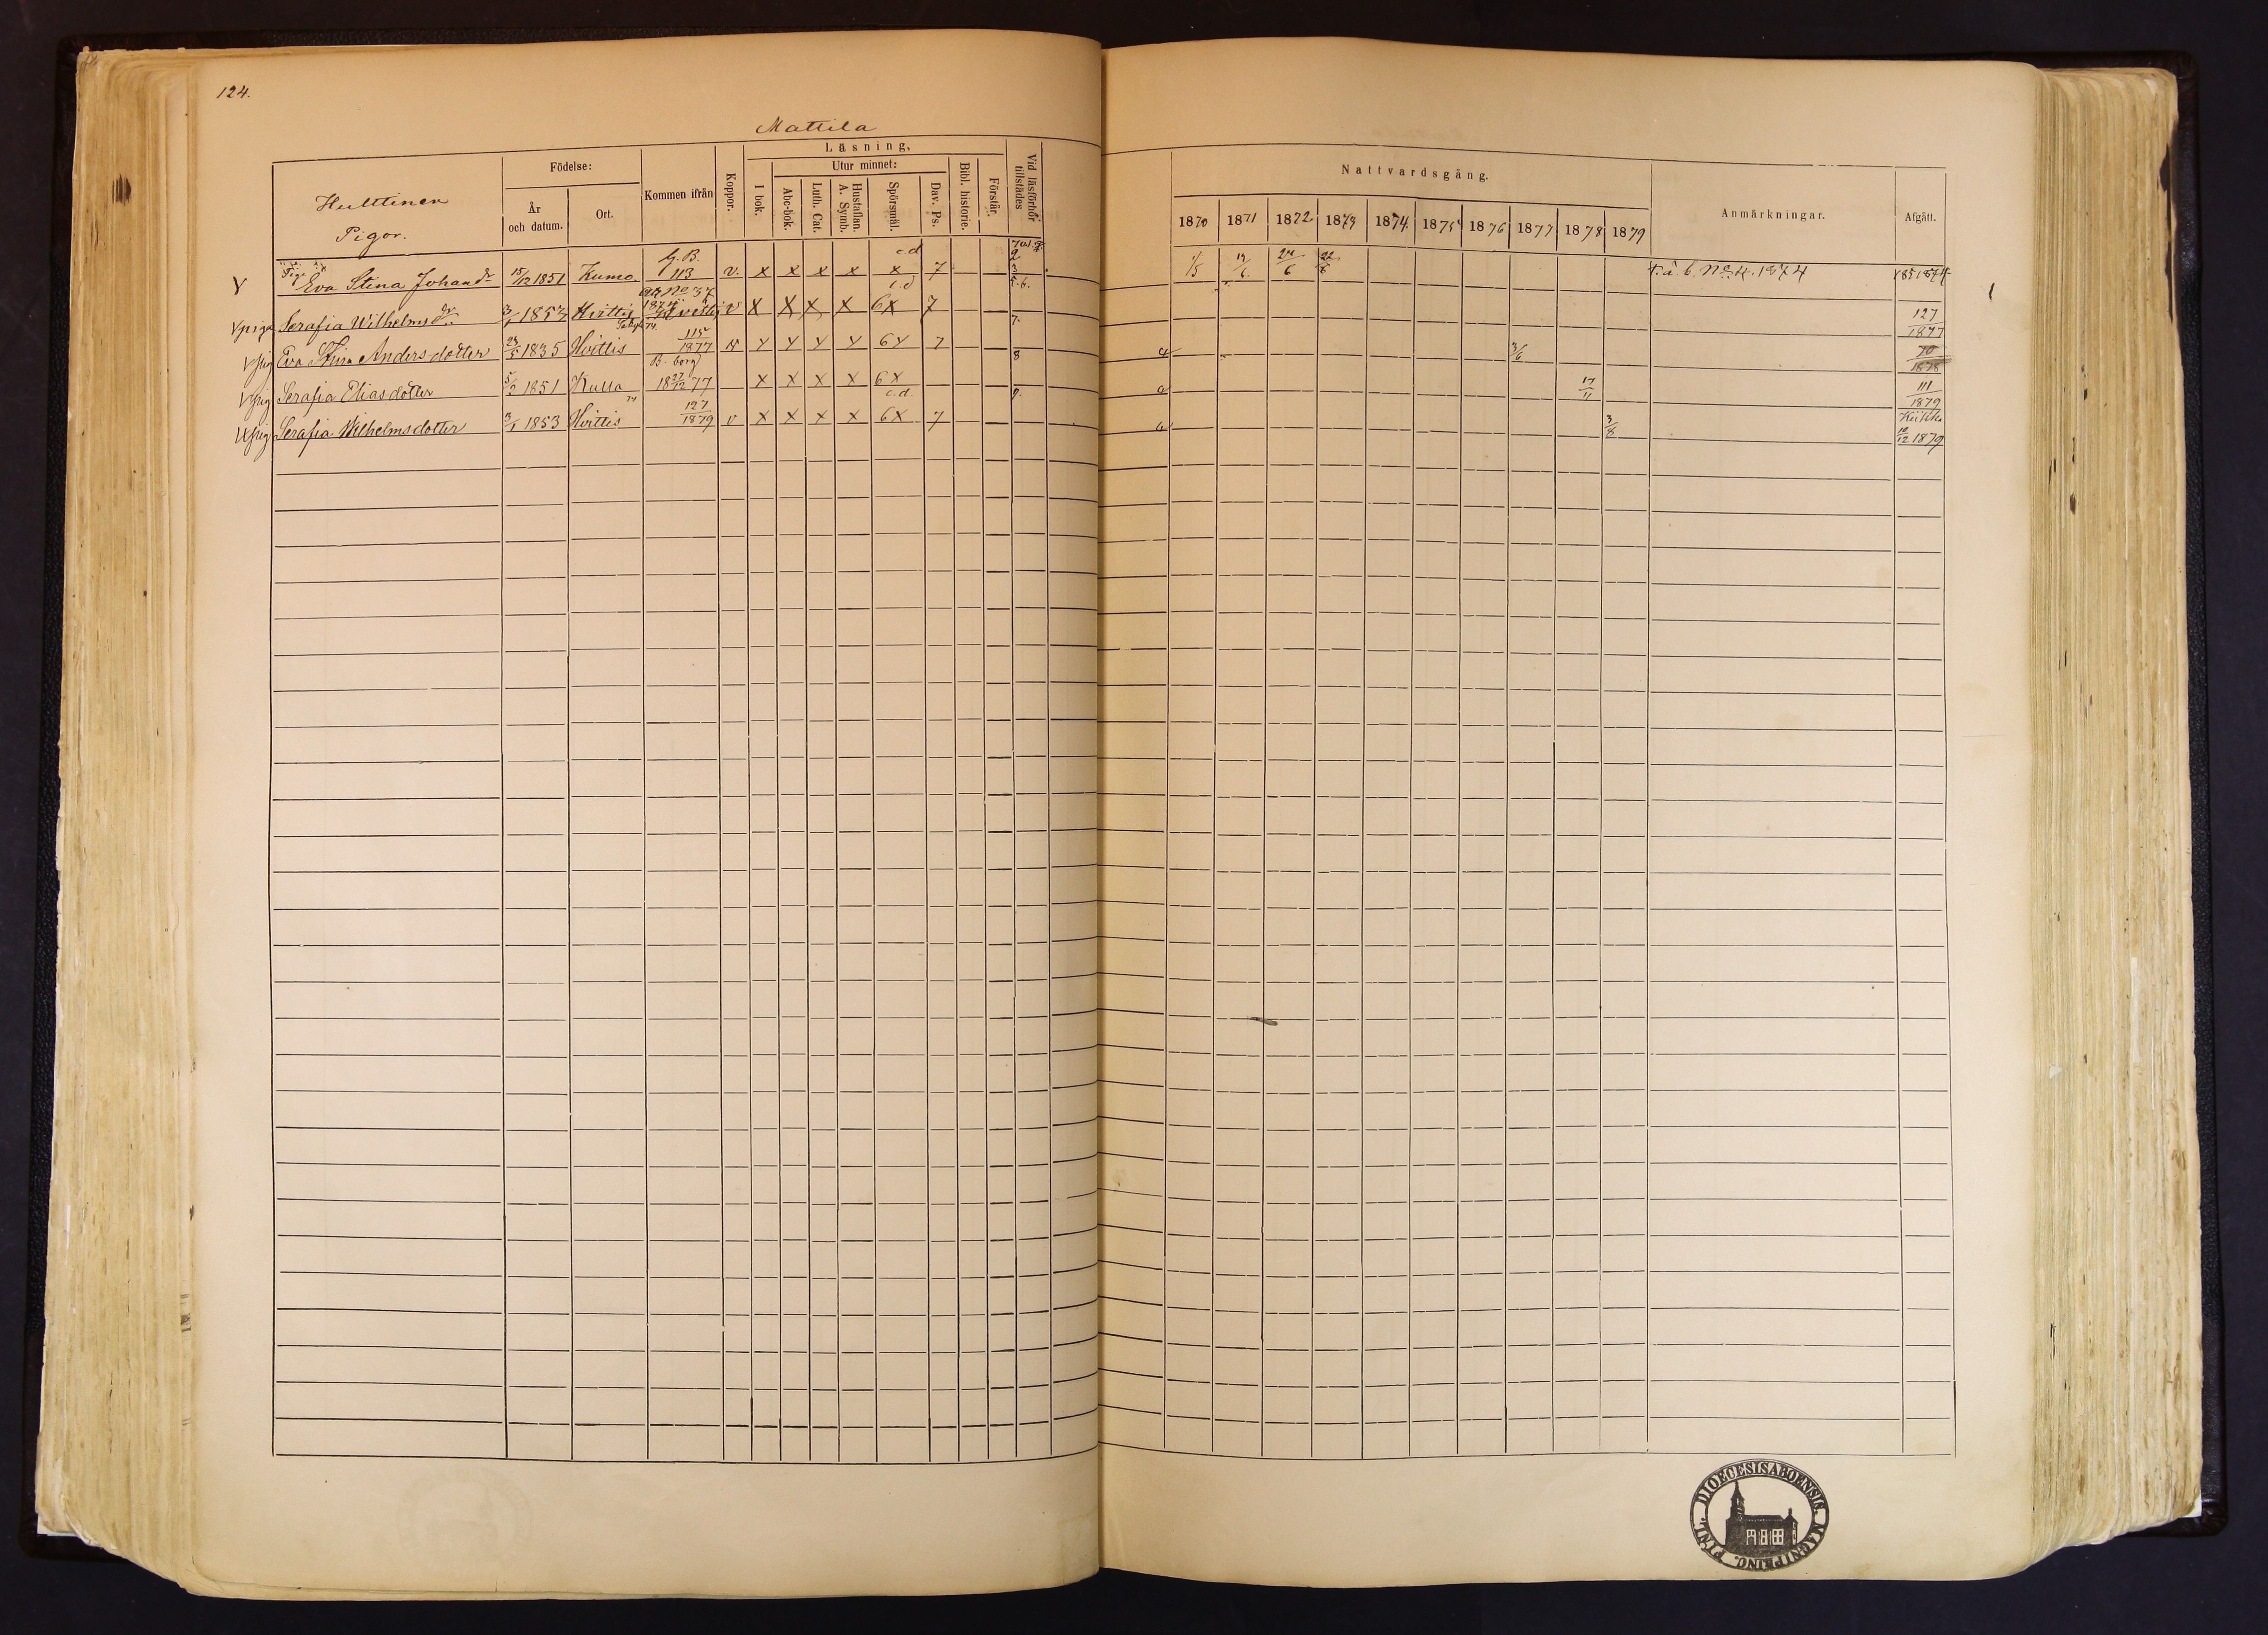 124.
Mattila
Hulttinen
Pigor.
Födelse:
År och datum.
Ort.
Kommen ifrån
Koppor.
Läsning.
I bok.
Utur minnet:
Abc-bok.
Luth. Cat.
Hustaflan. A. Symb.
Spörsmål.
Dav. Ps.
Bibl. historie.
Förstår.
Vid läsförhör tillstädes
Nattvardsgång.
1870 1871 1872 1873 1874 1875 1876 1877 1878 1879
Anmärkningar.
Afgått.
Pig. Eva Stina Johansdr 15/12 1851 Kumo. G.B. 113 v. x x x x c.d x 7 1/5 19/6. 24/6 F. å. b. No 4. 1874
V piga Serafia Wilhelmsdr 3/1 1853 Hvittis v X X X X c.d 6X 7 7. 127/1877
V pig Eva Stina Andersdotter 23/5 1835 Hvittis 115/1877 v 6 7 8 a 3/6 70/1878
V pig Serafia Eliasdotter 5/2 1851 Kulla B. borg 18 27/12 77 X X X X 6X 9. a 17/11 111/1879
V pig Serafia Wilhelmsdotter 3/1 1853 Hvittis 127/1879 v X X X X c.d. 6X 7 a 3/8 Kiikka 10/12 1879
DIOECESIS ABOENSIS. MAGNI PRINC. FINL.